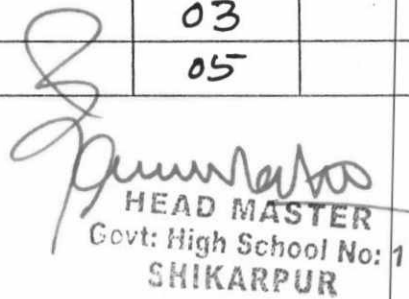 03
05
HEAD MASTER
Govt: High School No: 1
SHIKARPUR